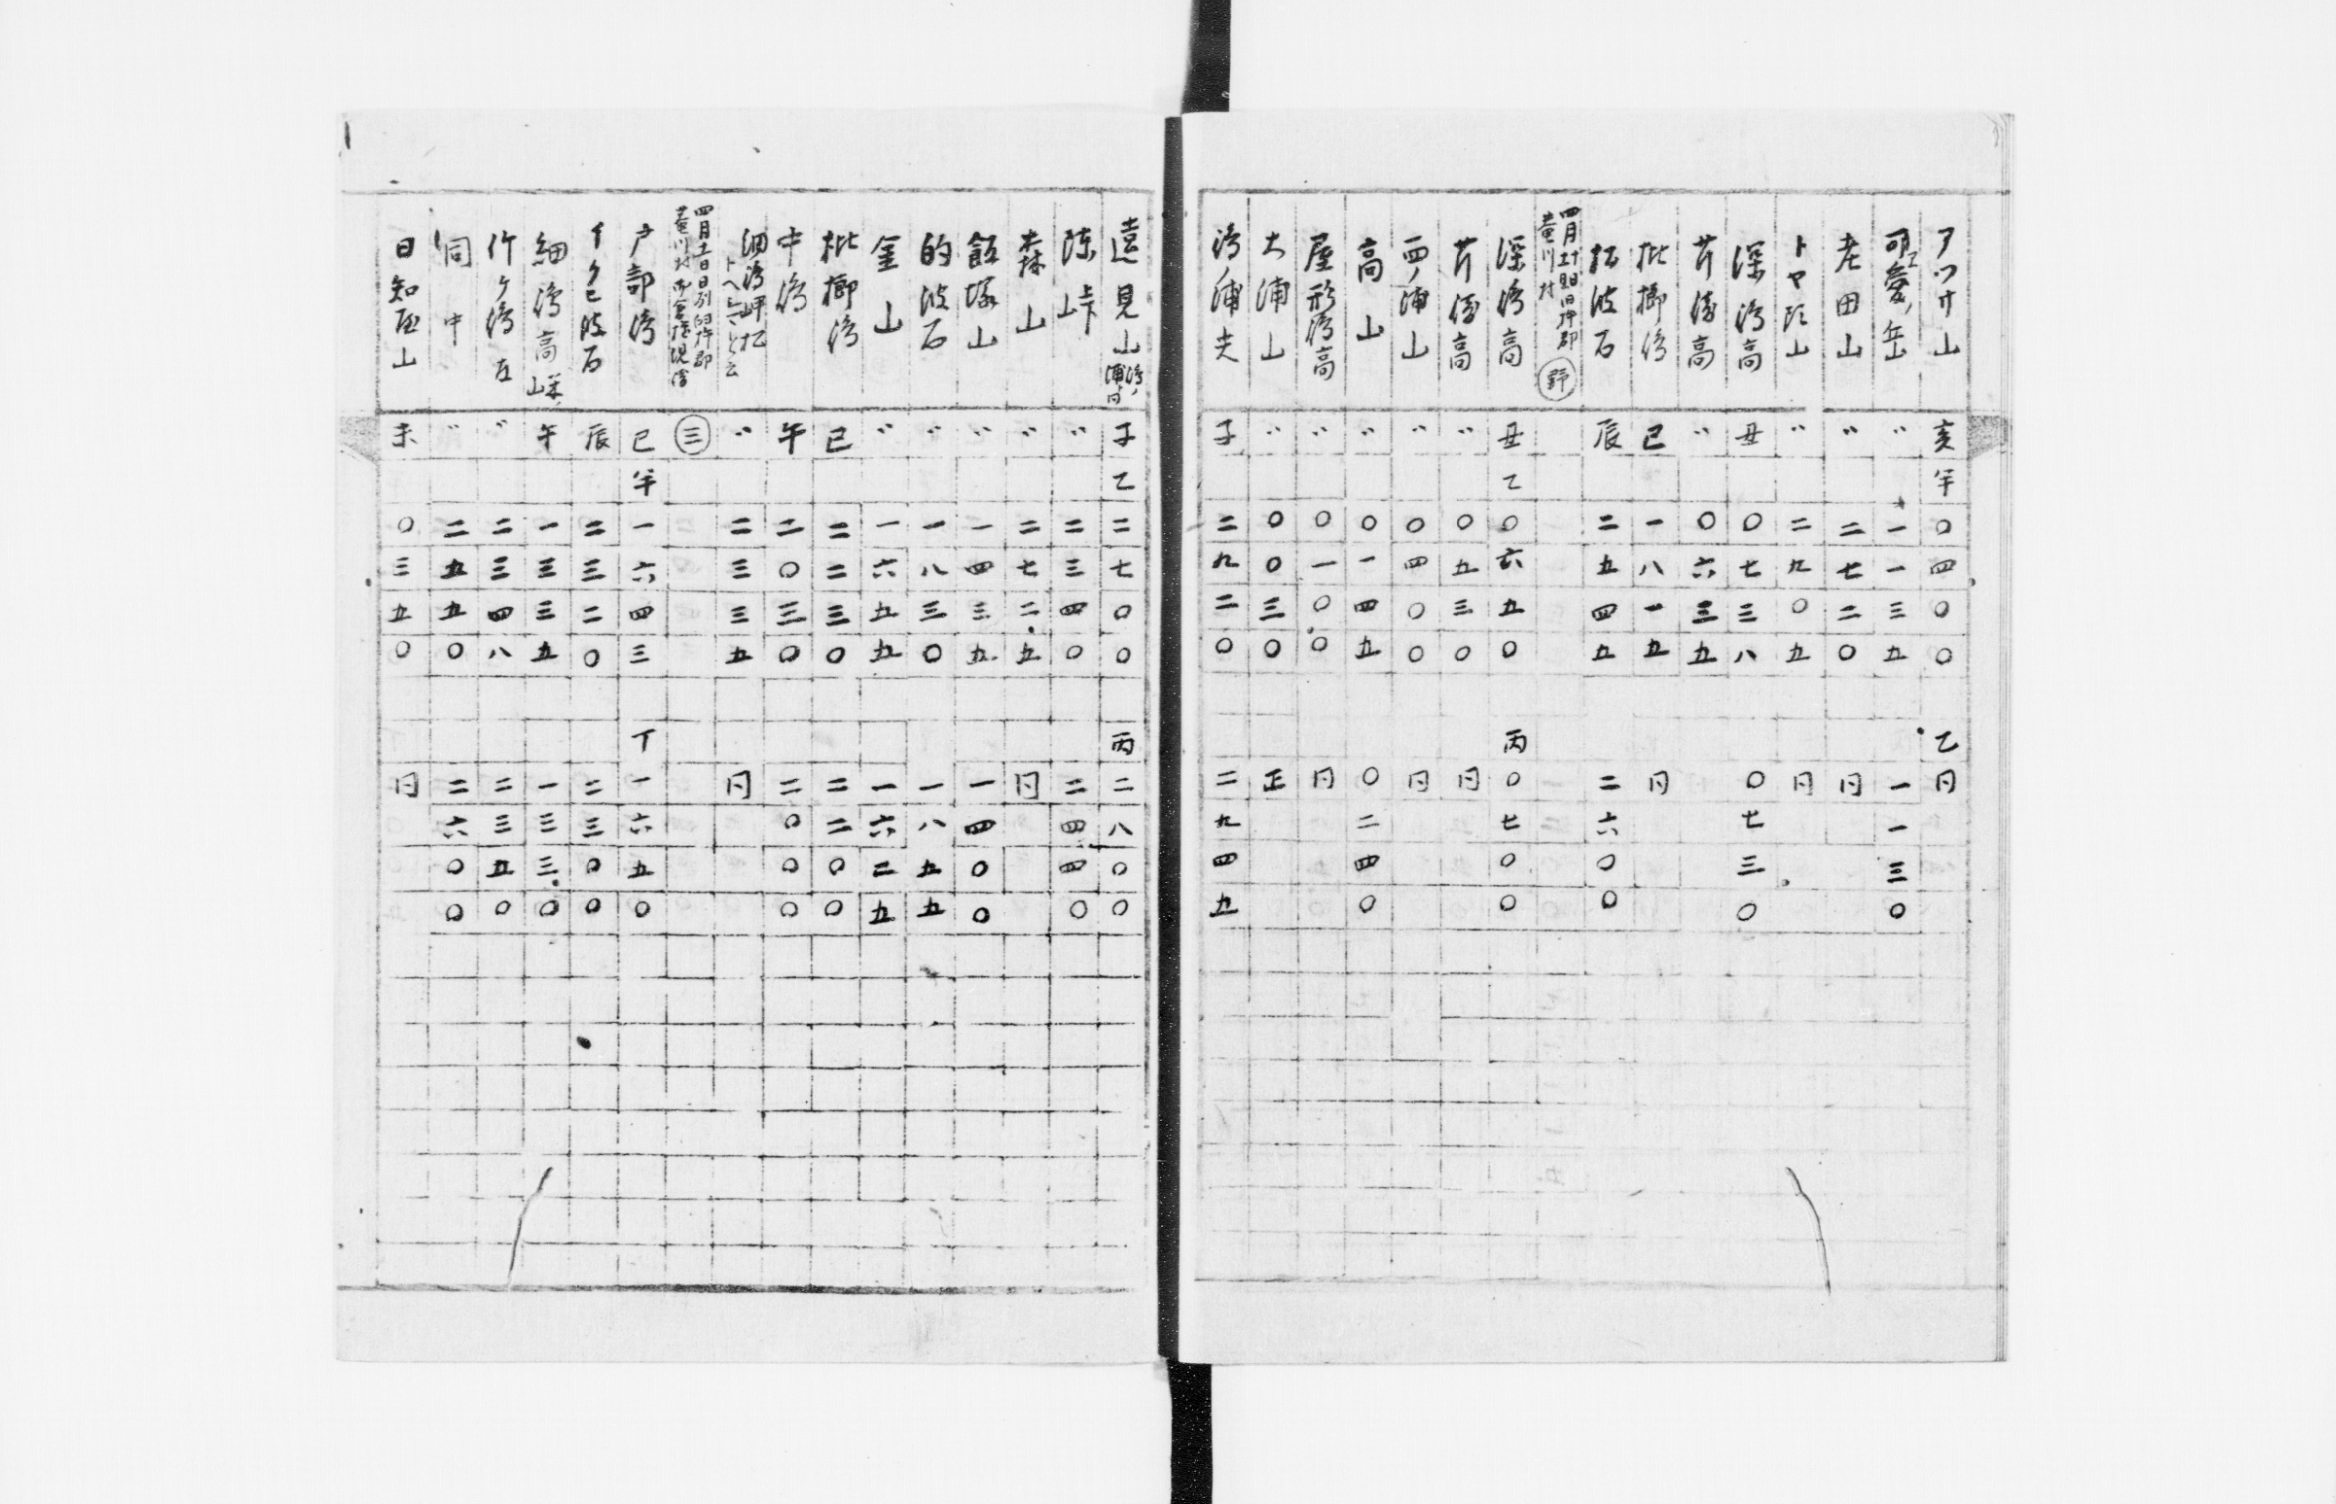 アツサ山 亥 半 〇四〇〇 乙 同
可愛ノ岳 〃 一一三五 一一三〇
老田山 〃 二七二〇 同
トヤ頭山 〃 二九〇五 同
深湾高 丑 〇七三八 〇七三〇
芹湾高 〃 〇六三五
枇榔湾 巳 一八一五 同
松波石 辰 二五四五 二六〇〇
四月 臼杵郡 村 野
深湾高 丑 乙 〇六五〇 丙 〇七〇〇
芹湾高 〃 〇五三〇 同
西ノ浦山 〃 〇四〇〇 同
高山 〃 〇一四五 〇二四〇
屋形湾高 〃 〇一〇〇 同
大浦山 〃 〇〇三〇 正
湾ノ浦 子 二九二〇 二九四五
遠見山 湾ノ浦内 子 乙 二七〇〇 丙 二八〇〇
陳峠 〃 二三四〇 二四四〇
森山 〃 二七二五 同
飯塚山 〃 一四三五 一四〇〇
的波石 〃 一八三〇 一八五五
金山 〃 一六五五 一六二五
枇榔湾 巳 二二三〇 二二〇〇
中湾 午 二〇三〇 二〇〇〇
細湾岬松 〃 二三三五 同
四月 日 臼杵郡 村 三
戸部湾 巳 半 一六四三 丁 一六五〇
イクヒ波石 辰 二三二〇 二三〇〇
細湾高 山 午 一三三五 一三三〇
竹ケ湾 左 〃 二三四八 二三五〇
同 中 〃 二五五〇 二六〇〇
日知屋山 未 〇三五〇 同